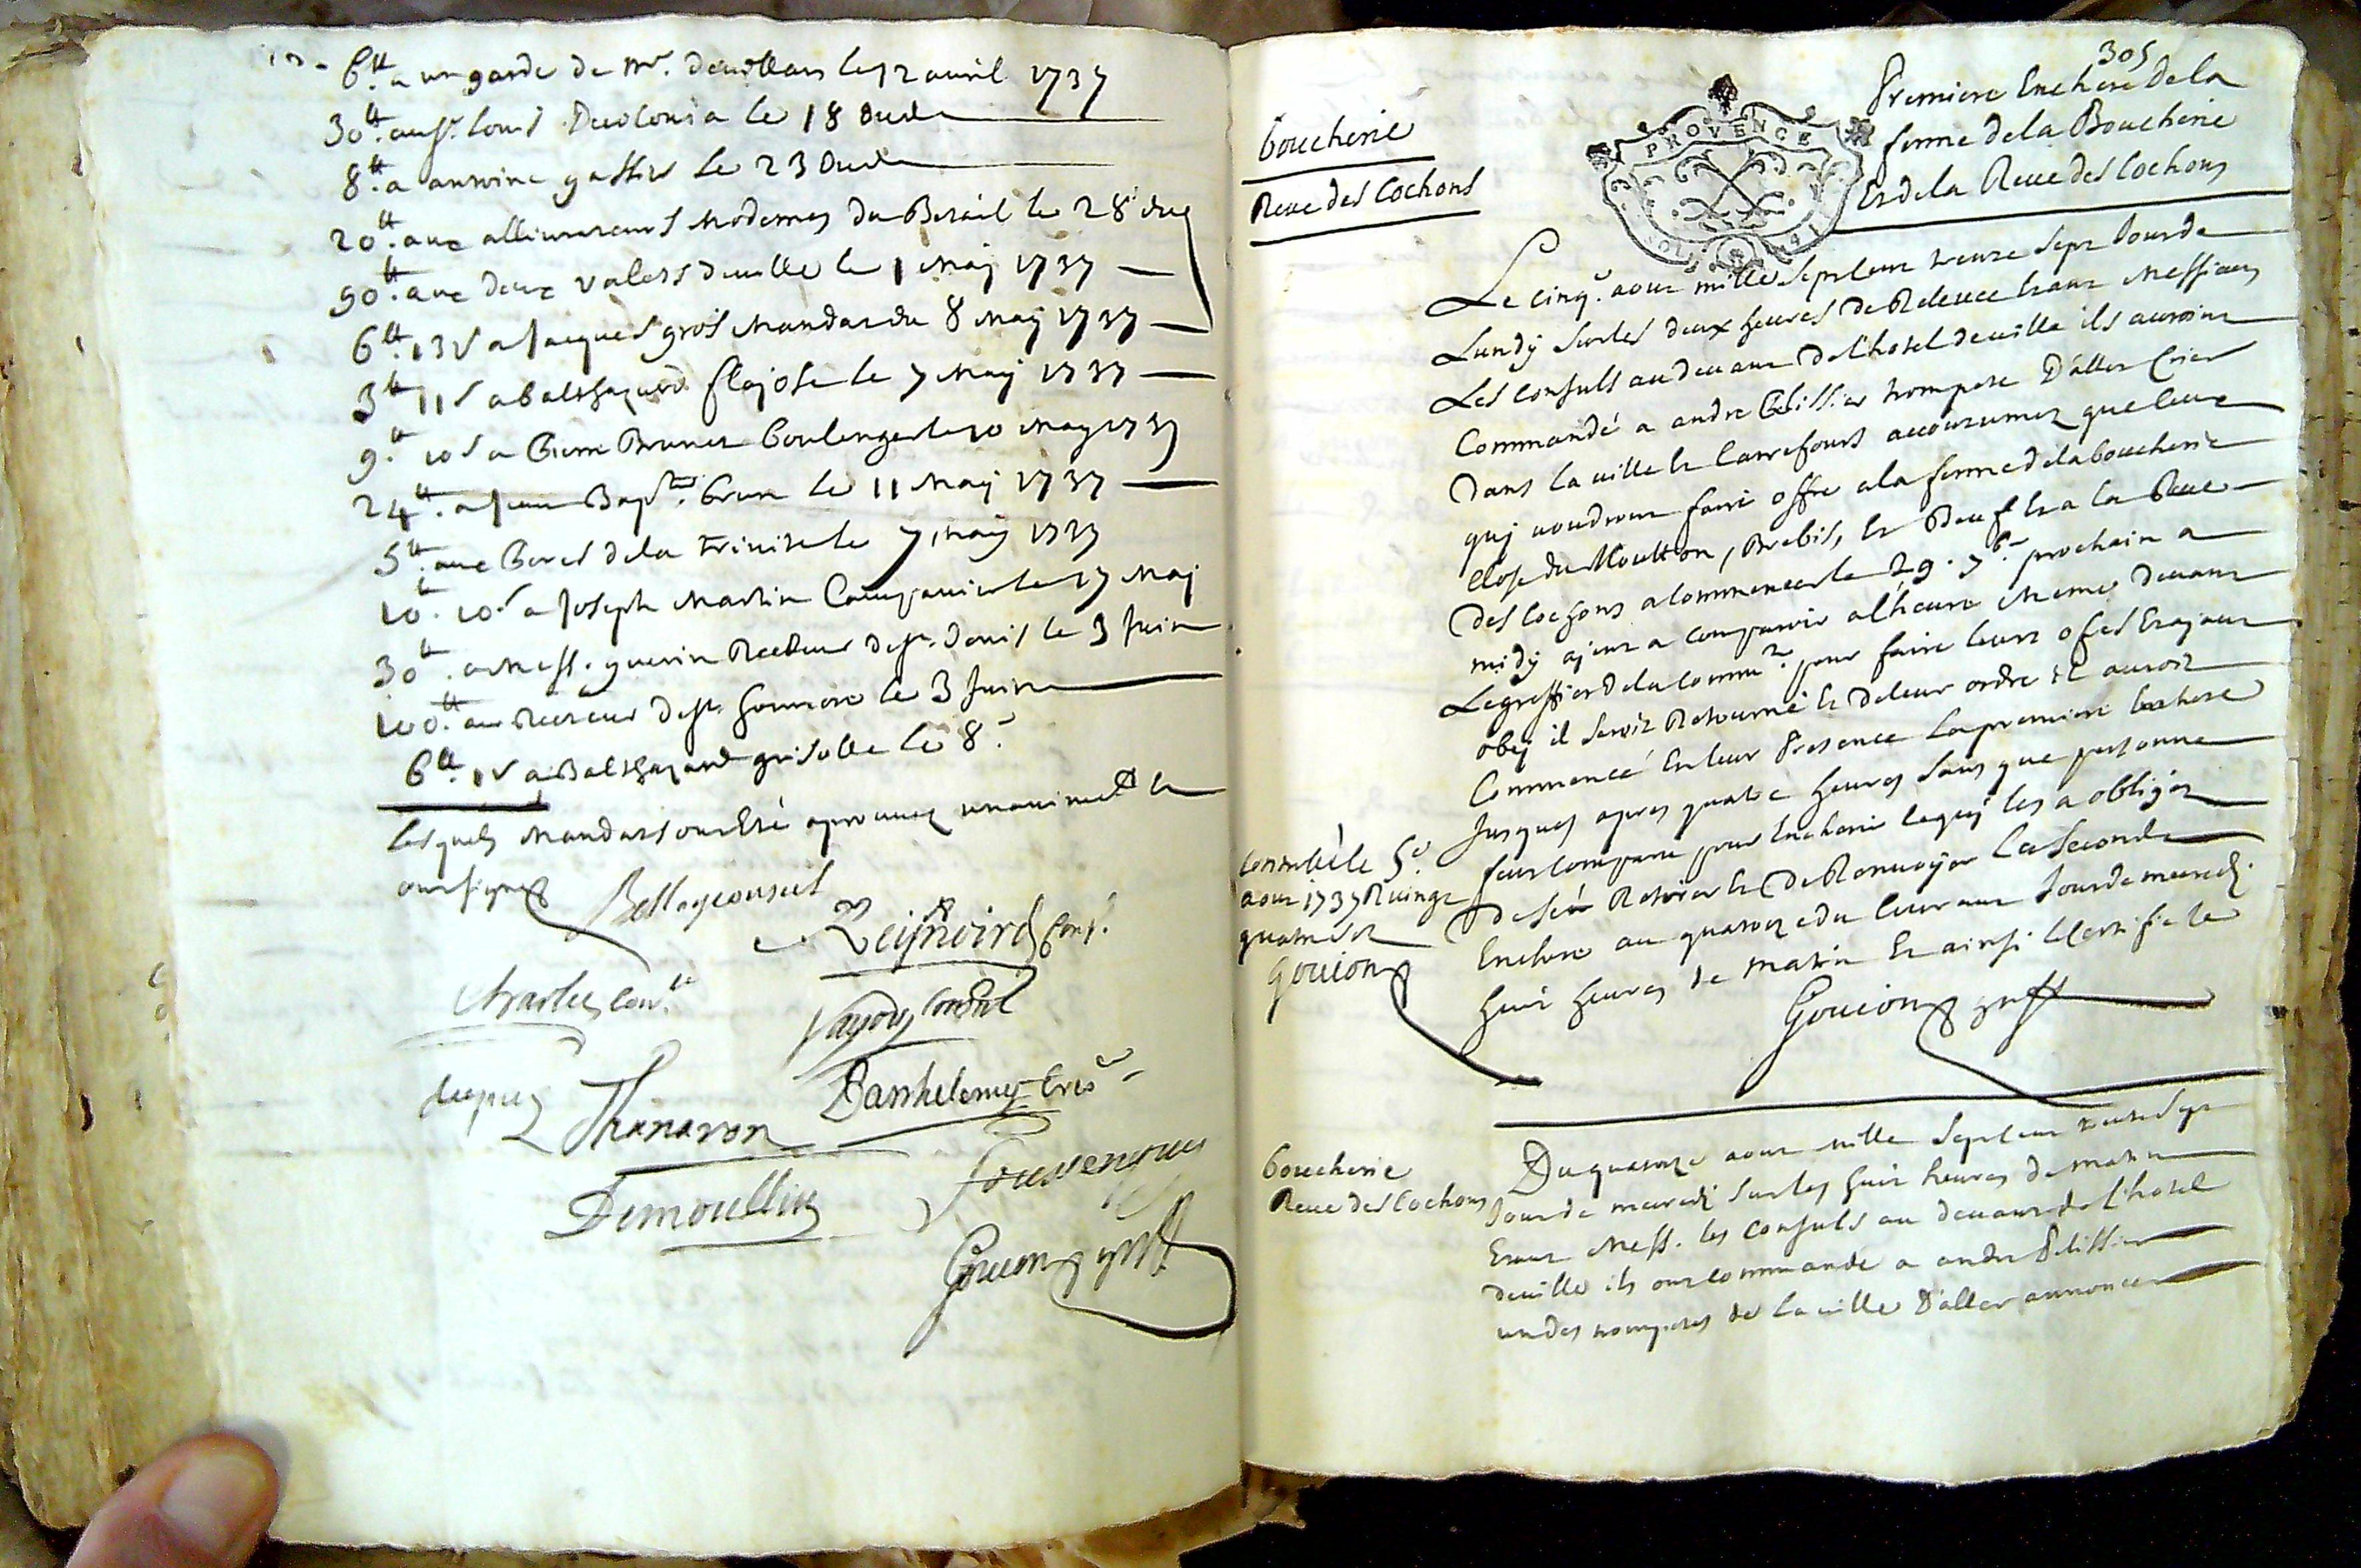 6tt. a un garde de mr. devillars le 12 auril 1737
30tt. au sr. louis le 18 dud
8tt. a antoine gassier le 23 dud
20tt. aux alliurateurs modernes du Betail le 28 dud
90tt. aux deux valets deuille le 1 may 1737
6tt. 13 s a Jacques gros mandat du 8 may 1737
3tt 11 s a balthazard flajose le 7 may 1737
9tt. 10 s a Pierre Brunet boulenger le 10 may 1737
24tt. a Jean Bapte. brun le 11 may 1737
5tt. aux Peres de la trinite le 7 may 1737
10tt. 10 s a Joseph martin le 17 may
30tt. a mess. guerin Recteur de st. denis le 3 Juin
100tt. au Recteur de st. honnore le 3 Juin
6tt. 1 s a Balthazard grisolle le 8
lesquels mandats ont Eté aprouuez unanimet. et
ont signez
consl.
Charles conlr.
consul
depuz Thanaron Barthelemy treser
Demoullin
Gouion greff
305
Premiere Enchere de la
ferme de la Boucherie
Et de la Reue des Cochons
boucherie
Reue des Cochons
PROVENCE
Le cinqe. aout mille sept cent trente sept Jour de
Lundy sur les deux heures de Releuee Etant messieurs
Les consuls au deuant de l'hotel de uille ils auroint
Commandé a andre Pelissier trompete D'aller Crier
Dans la uille et Carrefours accoutumez que ceux
quj uoudront faire offre a la ferme de la boucherie
close du Moutton, Brebis, et Beuf Et a la Reue
Des cochons a commencer le 29. 7bre prochain a
midy ajent a comparoir a l'heure meme deuant
Le greffier de la commté. pour faire leurs ofres Et ajant
obej il seroit Retourné et de leur ordre il auroit
Commencé En leur Presence la premiere Enchere
Jusques apres quatre heures sans que personne
soit comparu pour Encherir ce quj les a obligés
de se Retirer et de Renuoyer la seconde
Enchere au quatorze du courant Jour de mecredj
huit heures de matin Et ainsi le certifie le
Gouion greff
Controllé le 5e.
aout 1737 R uingt
quatre s
Gouion
boucherie
Reue des Cochons
Du quatorze aout mille sept cent trente sept
Jour de mecredj sur les huit heures de matin
Etant mess. les consuls au deuant de l'hotel
deuille ils ont commandé a andre Pelissier
un des trompetes de la uille D'aller annoncer